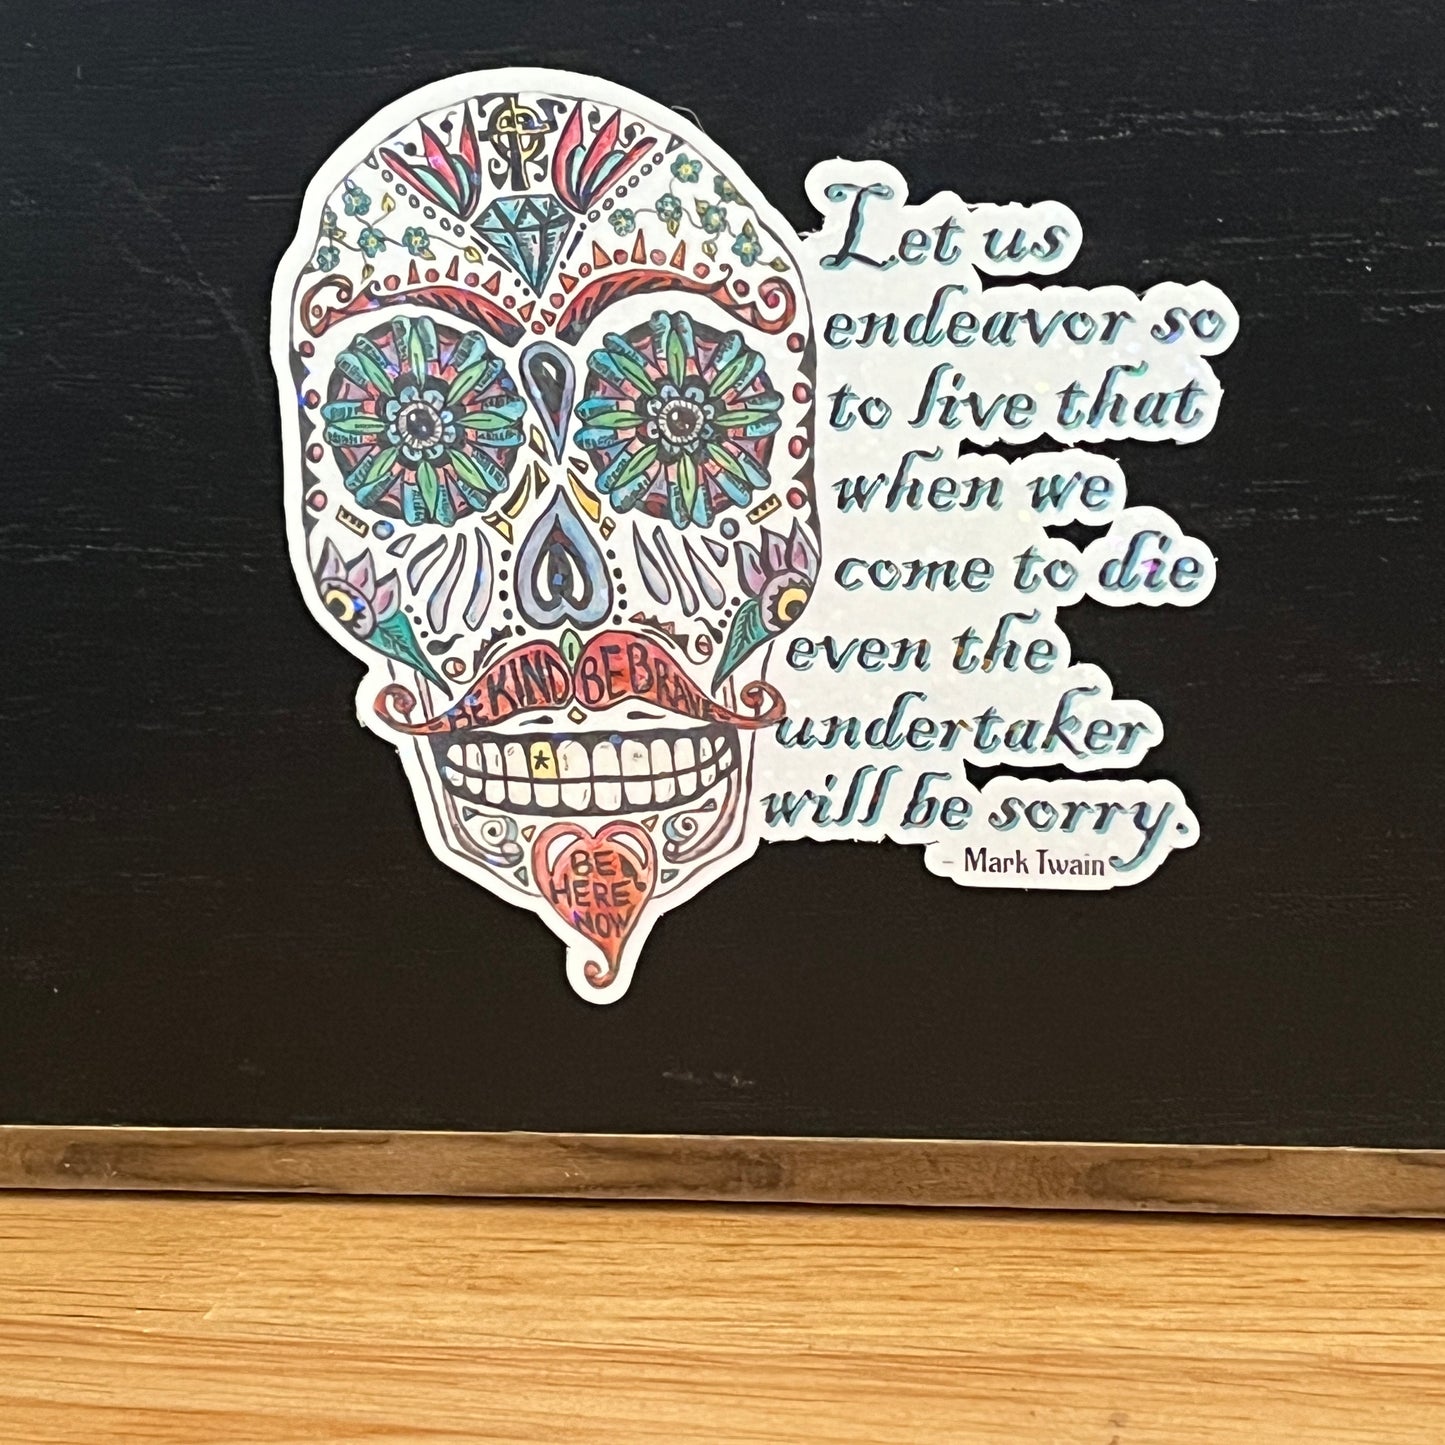 BE KIND BE BRAVE
BE
HERE
NOW
Let us
endeavor so
to live that
when we
come to die
even the
undertaker
will be sorry.
- Mark Twain